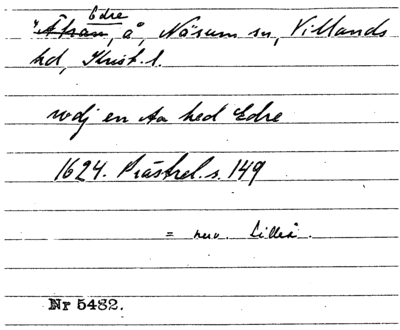 Edre
"Åfsan, å, Näsum sn, Villands
hd, Krist. l.
wdj en Aa hed Edre
1624. Prästrel. s. 149
= nuv. Lilleå.
Nr 5482.